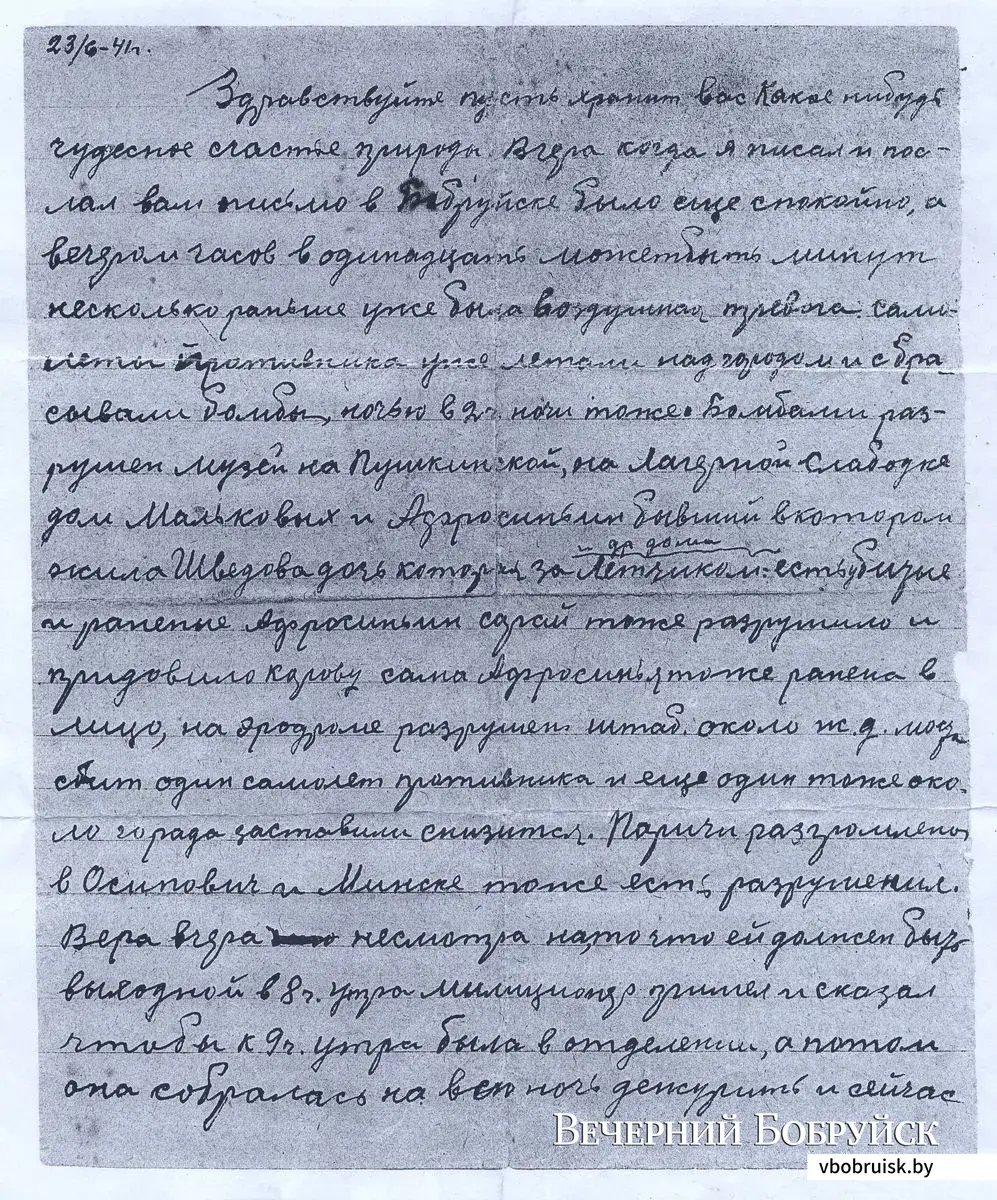 23/6-41г.
Здравствуйте пусть хранит вас какое нибудь
чудесное счастье природы. Вчера когда я писал и пос-
лал вам письмо в Бобруйске было еще спокойно, а
вечером часов в одинадцать можетбыть минут
несколько раньше уже была воздушная тревога. само-
леты противника уже летали над городом и сбра
сывали бомбы, ночью в 2ч. ночи тоже. Бомбами раз-
рушен музей на Пушкинской, на Лагерной Слабодке
дом Мальковых и Адфросиньин бывший вкотором
и др дома
жила Шведова дочь которой за Летчиком. есть убитые
и раненые Адфросиньин сарай тоже разрушило и
придовило корову сама Адфросинья тоже ранена в
лицо, на эродроме разрушен штаб. около ж.д. моста
сбит один самолет противника и еще один тоже око-
ло города заставили снизится. Паричи разгромлено
в Осипович и Минске тоже есть разрушения.
Вера вчера несмотря нато что ей должен быть
выходной в 8ч. утра мылиционер пришел и сказал
чтобы к 9ч. утра была в отделении, а потом
она собралась на всю ночь дежурить и сейчас
Вечерний Бобруйск
vbobruisk.by